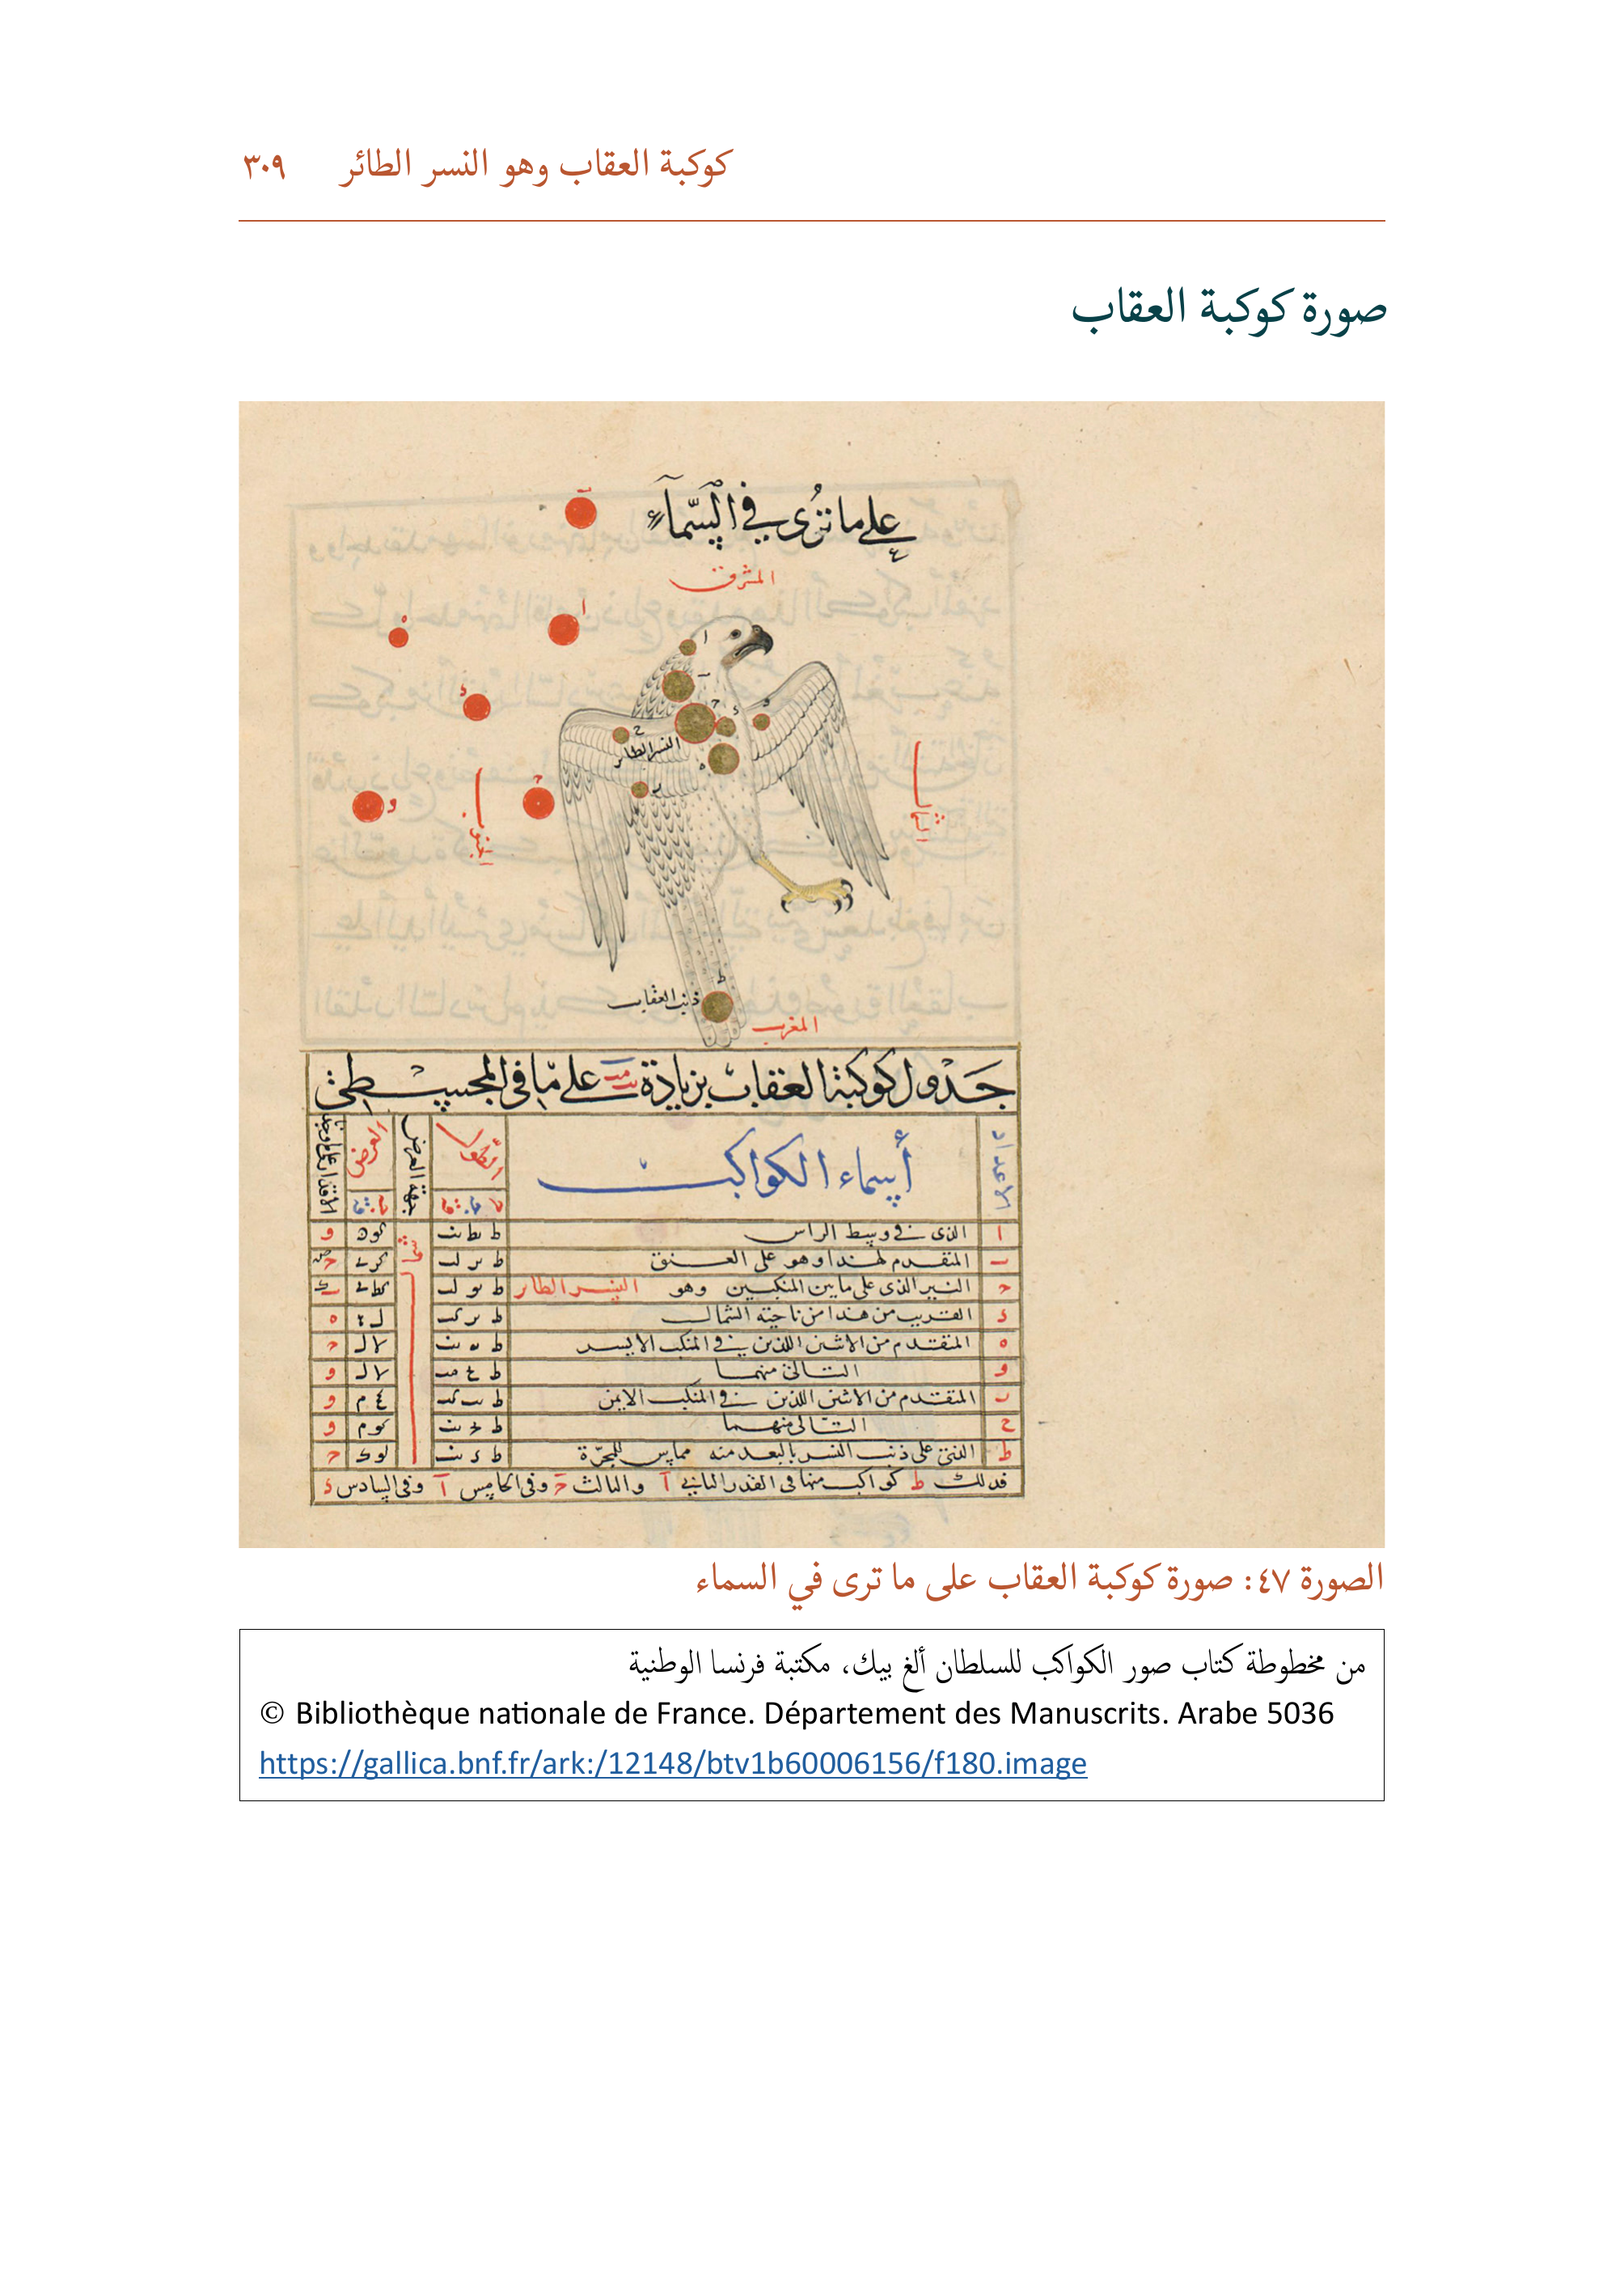 كوكبة العقاب وهو النسر الطائر ٣٠٩
صورة كوكبة العقاب
على ما ترى في السماء
المشرق
الشمال
الجنوب
النسر الطائر
ذنب العقاب
المغرب
جدول كوكبة العقاب بزيادة على ما في المجسطي
الاعداد اسماء الكواكب الطول جهة العرض العرض
ا الذى فى وسط الراس
المتقدم لهذا وهو على العنق
النير الذى على ما بين المنكبين وهو النسر الطائر
القريب من هذا من ناحية الشمال
ه المتقدم من الاثنين اللذين فى المنكب الايسر
و التالى منهما
المتقدم من الاثنين اللذين فى المنكب الايمن
ح التالى منهما
ط الذى على ذنب النسر بالبعد منه مماس للمجرّة
فذلك ط كواكب منها فى القدر الثانى آ والثالث حـ وفى الخامس آ وفى السادس د
الصورة ٤٧: صورة كوكبة العقاب على ما ترى في السماء
من مخطوطة كتاب صور الكواكب للسلطان ألغ بيك، مكتبة فرنسا الوطنية
© Bibliothèque nationale de France. Département des Manuscrits. Arabe 5036
https://gallica.bnf.fr/ark:/12148/btv1b60006156/f180.image